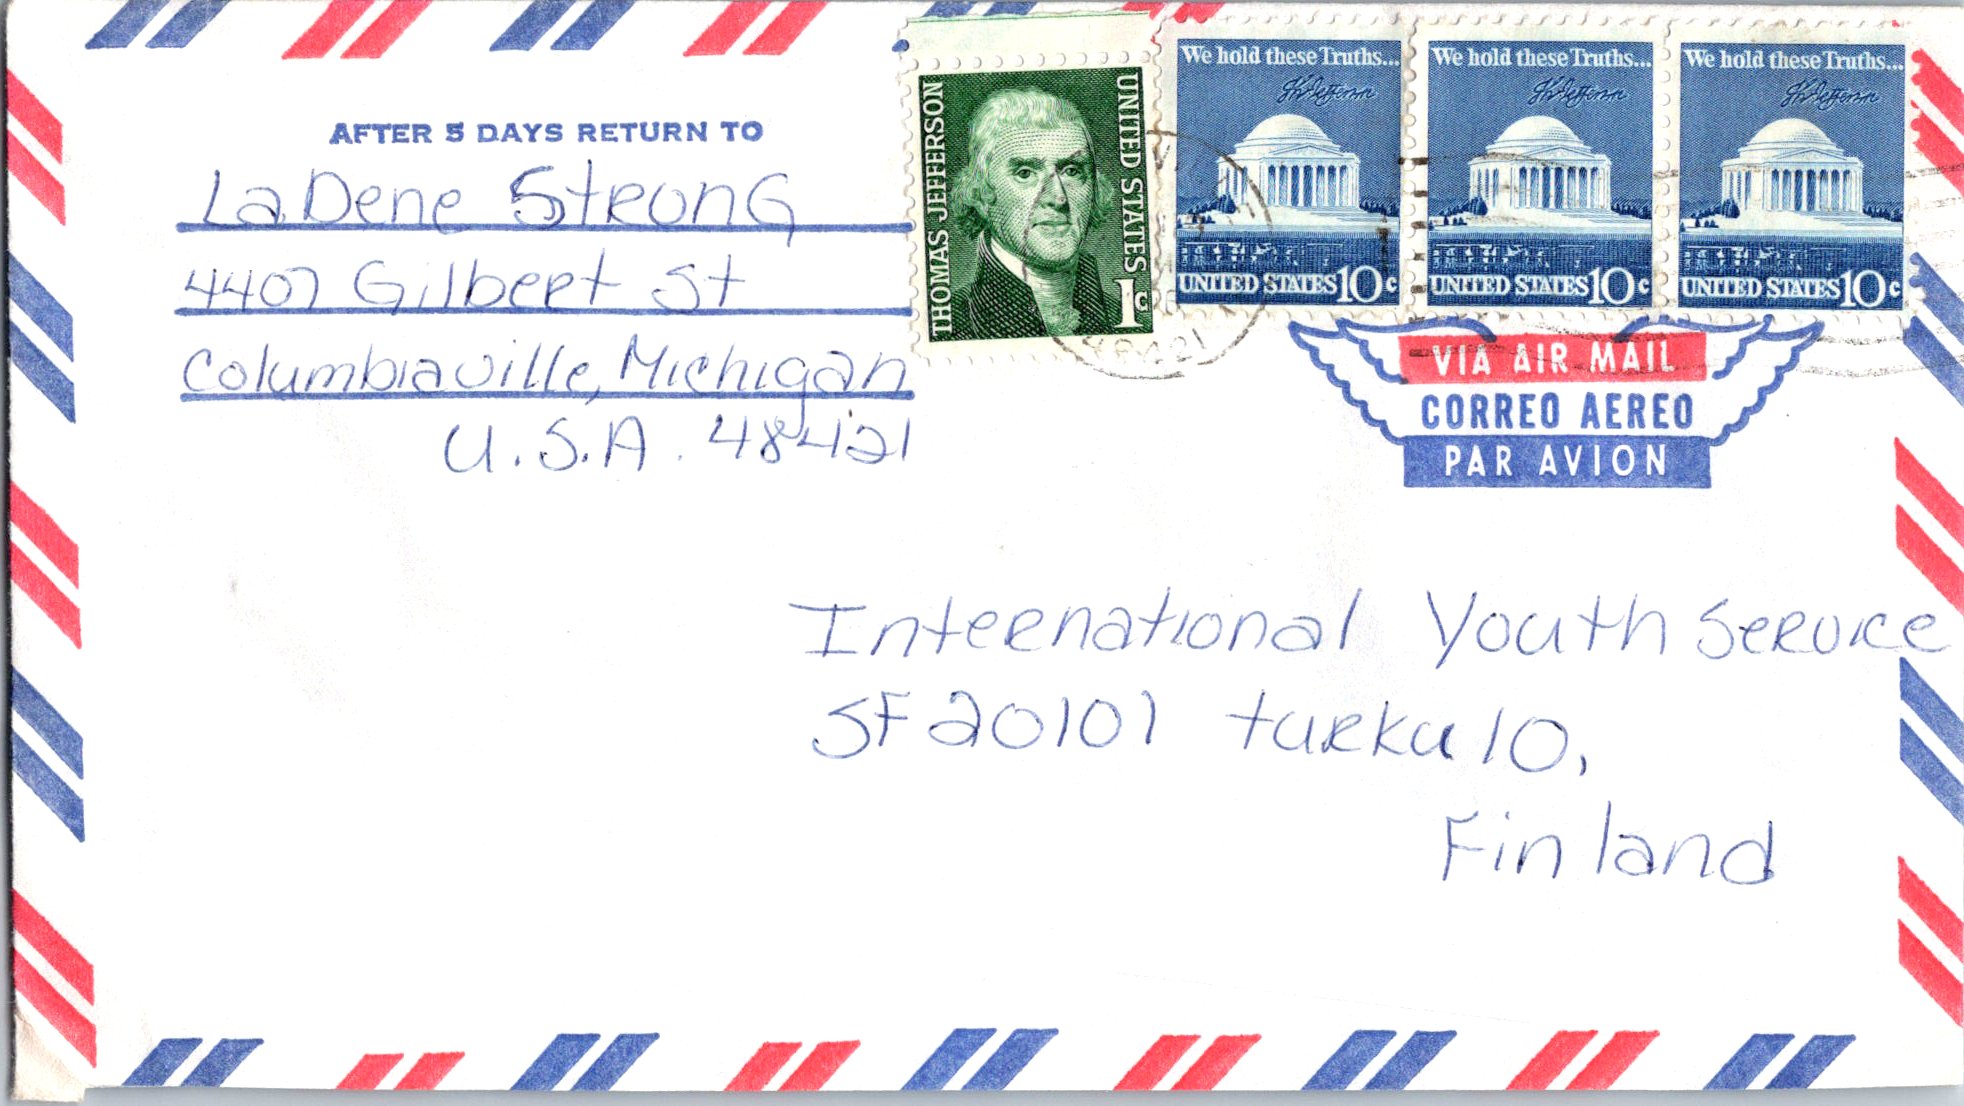 AFTER 5 DAYS RETURN TO
LaDene Strong
4407 Gilbert St
Columbiaville, Michigan
U.S.A. 48421
THOMAS JEFFERSON
UNITED STATES
1c
We hold these Truths...
Th Jefferson
UNITED STATES 10c
We hold these Truths...
Th Jefferson
UNITED STATES 10c
We hold these Truths...
Th Jefferson
UNITED STATES 10c
48421
VIA AIR MAIL
CORREO AEREO
PAR AVION
International Youth Service
SF20101 turku 10,
Finland